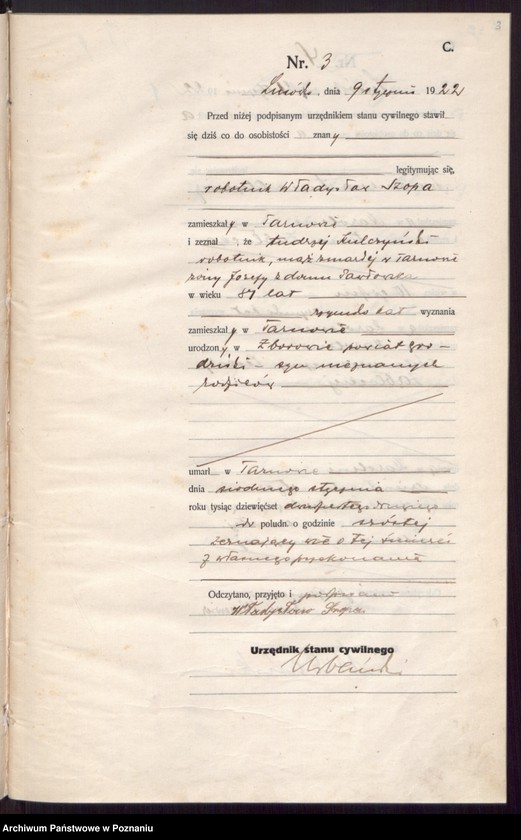 C.
Nr. 3
dnia 9 stycznia 1922
Przed niżej podpisanym urzędnikiem stanu cywilnego stawił
się dziś co do osobistości znany
legitymując się,
robotnik Władysław Szopa
zamieszkały w Tarnowie
i zeznał, że Andrzej Kulczyński
robotnik, mąż zmarłej w Tarnowie
żony Józefy z domu Pawłowska
w wieku 81 lat
rzymsko kat wyznania
zamieszkały w Tarnowie
urodzony w Zborowie powiat gro-
dziski syn nieznanych
rodziców
umarł w Tarnowie
dnia siódmego stycznia
roku tysiąc dziewięćset dwudziestego drugiego
po połudn. o godzinie szóstej
zeznający wie o tej śmierci
z własnego przekonania
Odczytano, przyjęto i podpisano
Władysław Szopa
Urzędnik stanu cywilnego
Urbański
Archiwum Państwowe w Poznaniu